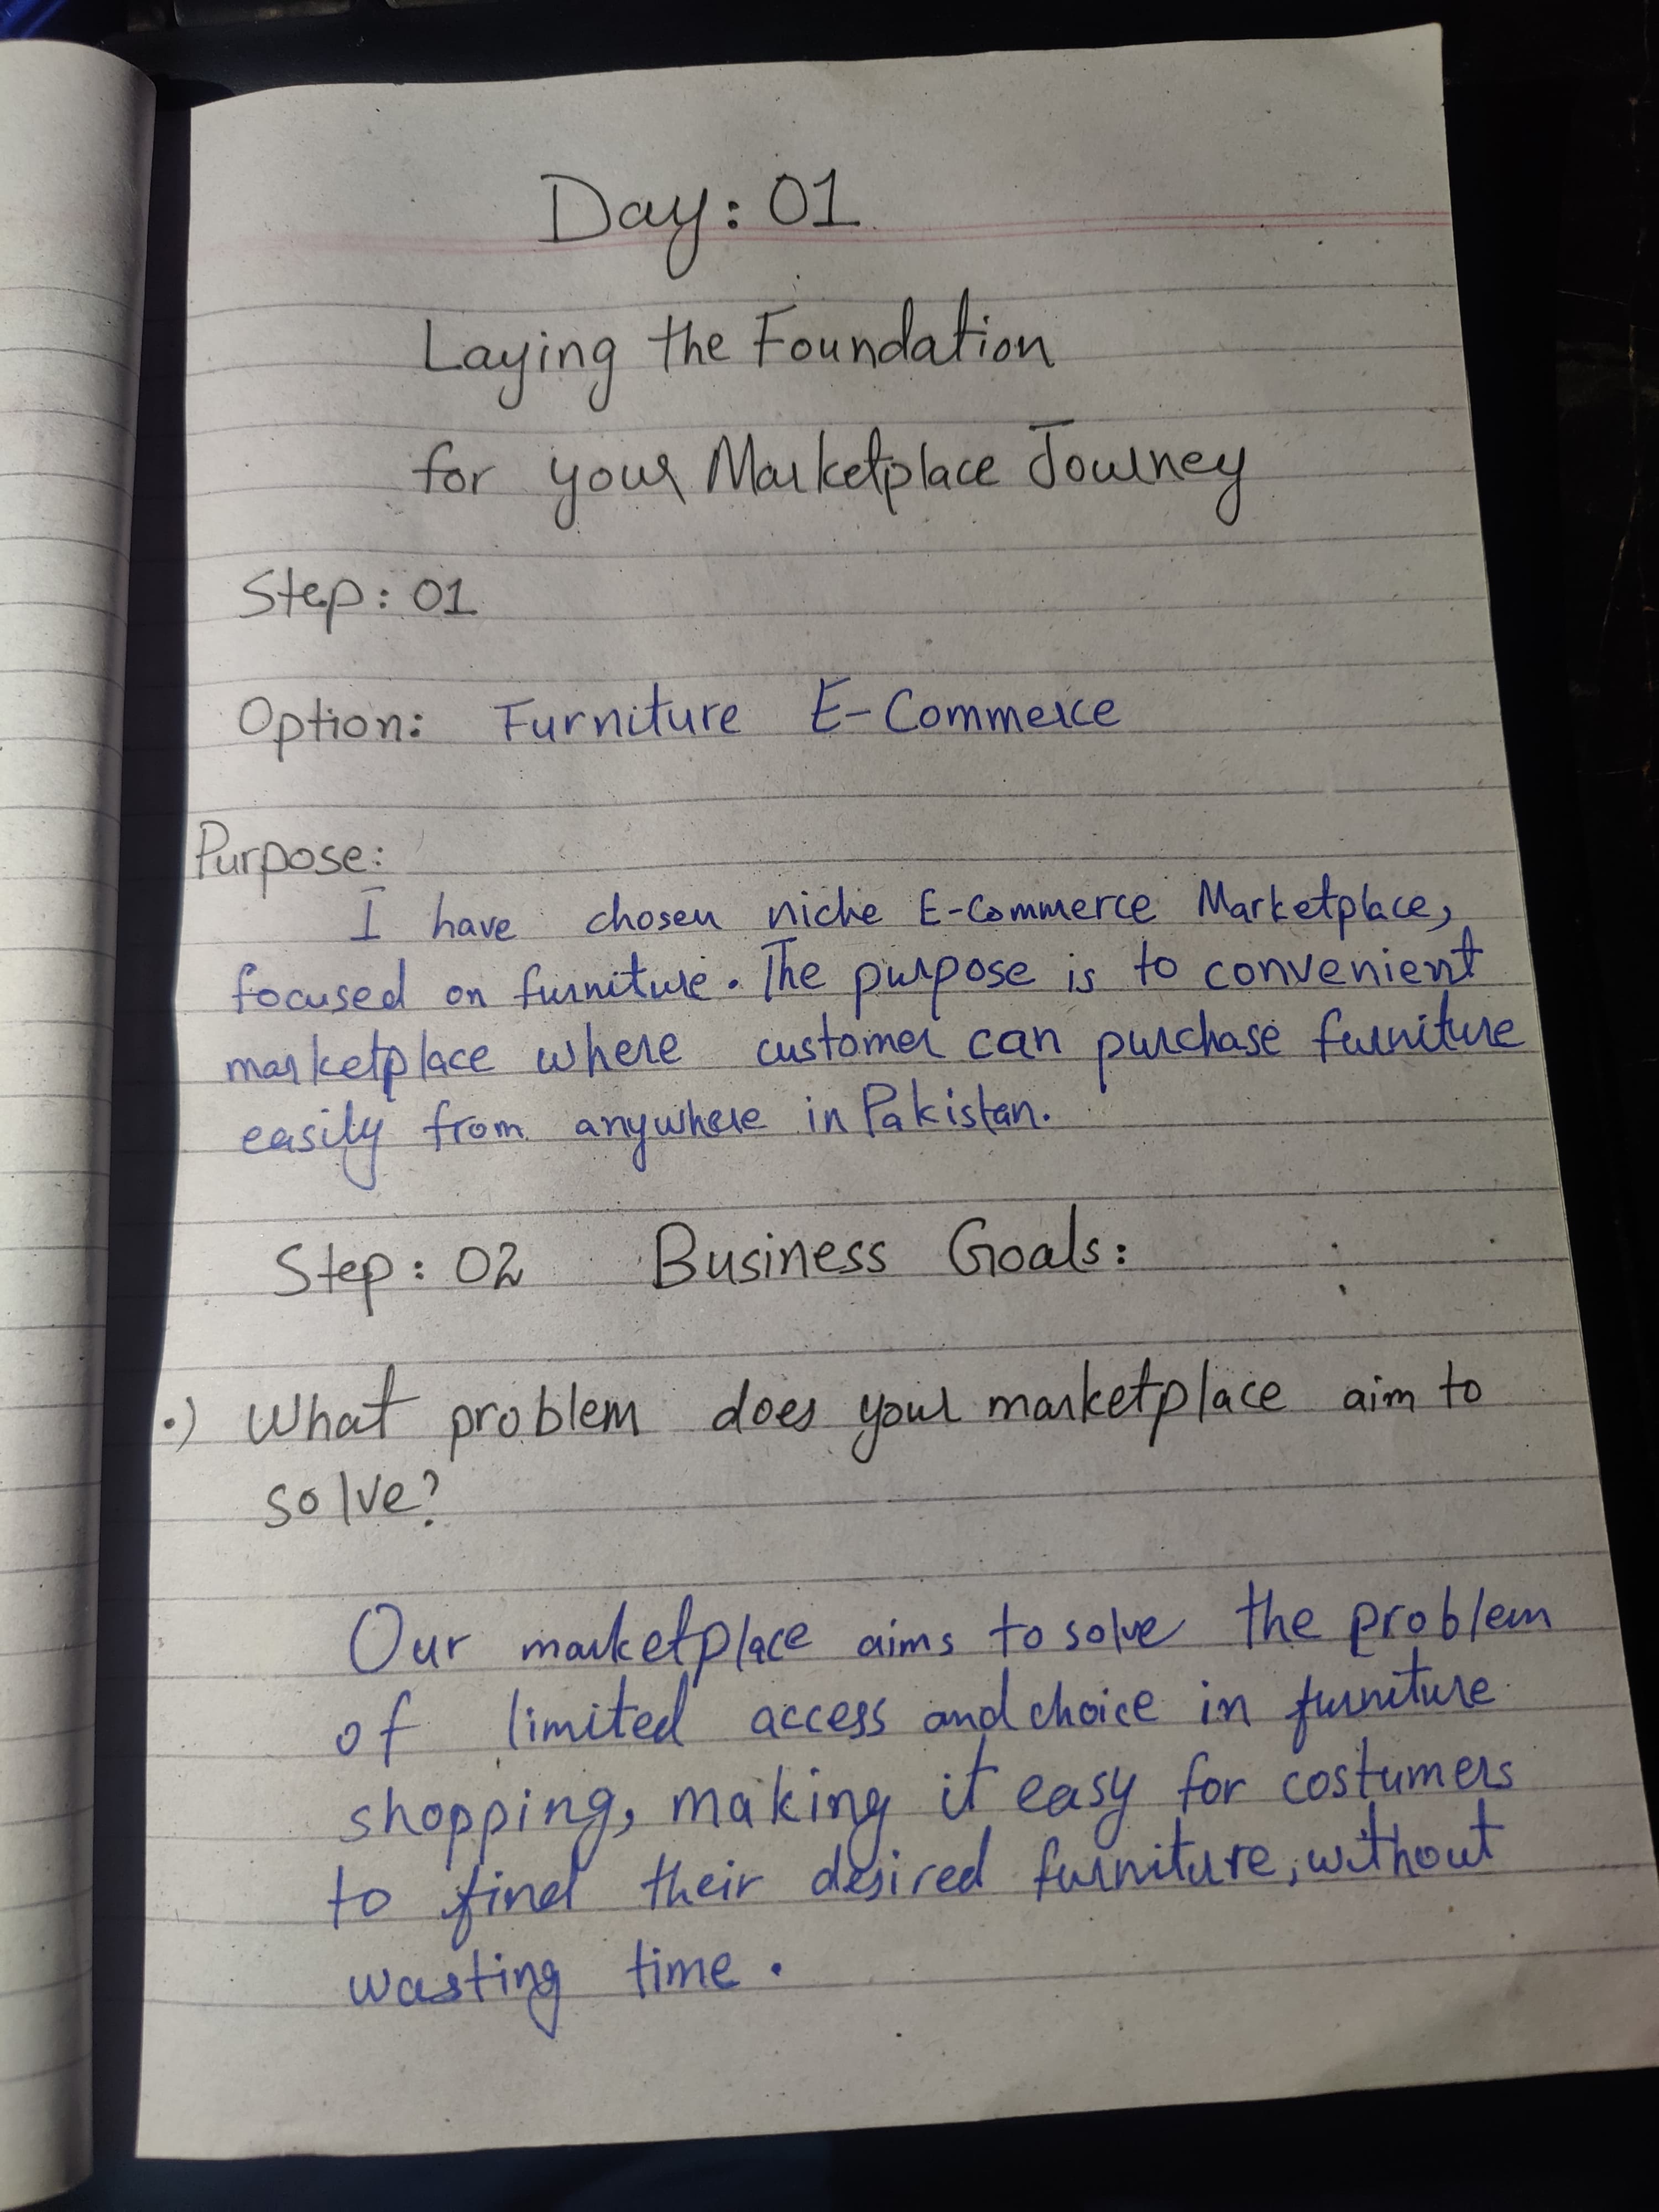 Day: 01
Laying the Foundation
for your Marketplace Journey
Step: 01
Option: Furniture E-Commerce
Purpose:
I have chosen niche E-Commerce Marketplace,
focused on furniture. The purpose is to convenient
marketplace where customer can purchase furniture
easily from anywhere in Pakistan.
Step: 02 Business Goals:
•) What problem does your marketplace aim to
solve?
Our marketplace aims to solve the problem
of limited access and choice in furniture
shopping, making it easy for costumers
to find their desired furniture, without
wasting time.